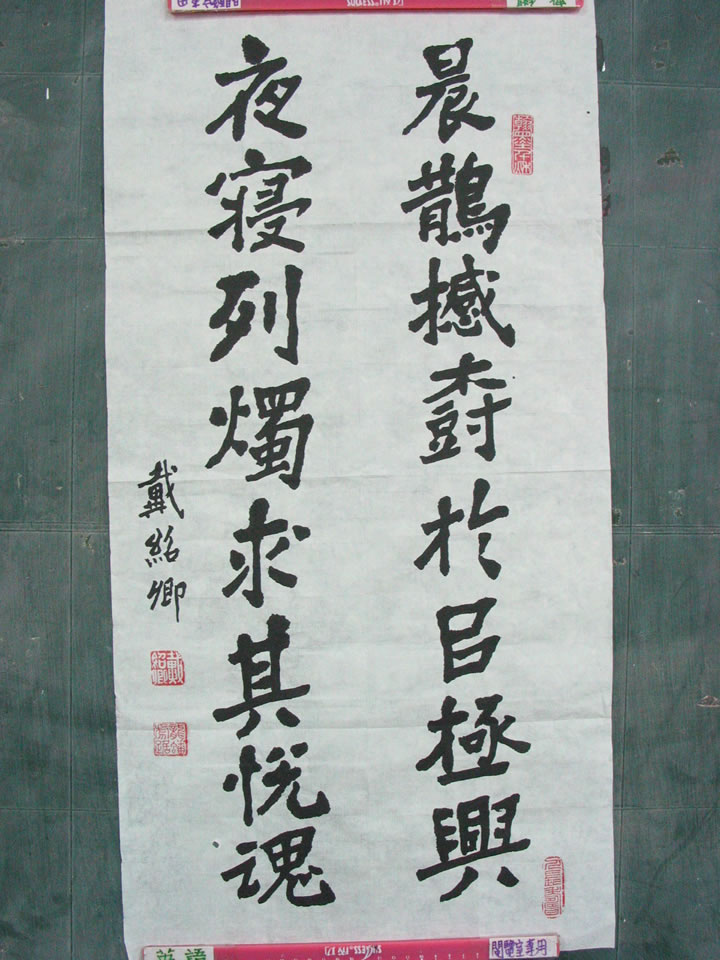 晨鵲撼於㠯極興
夜寢列燭求其恍魂
戴紹卿